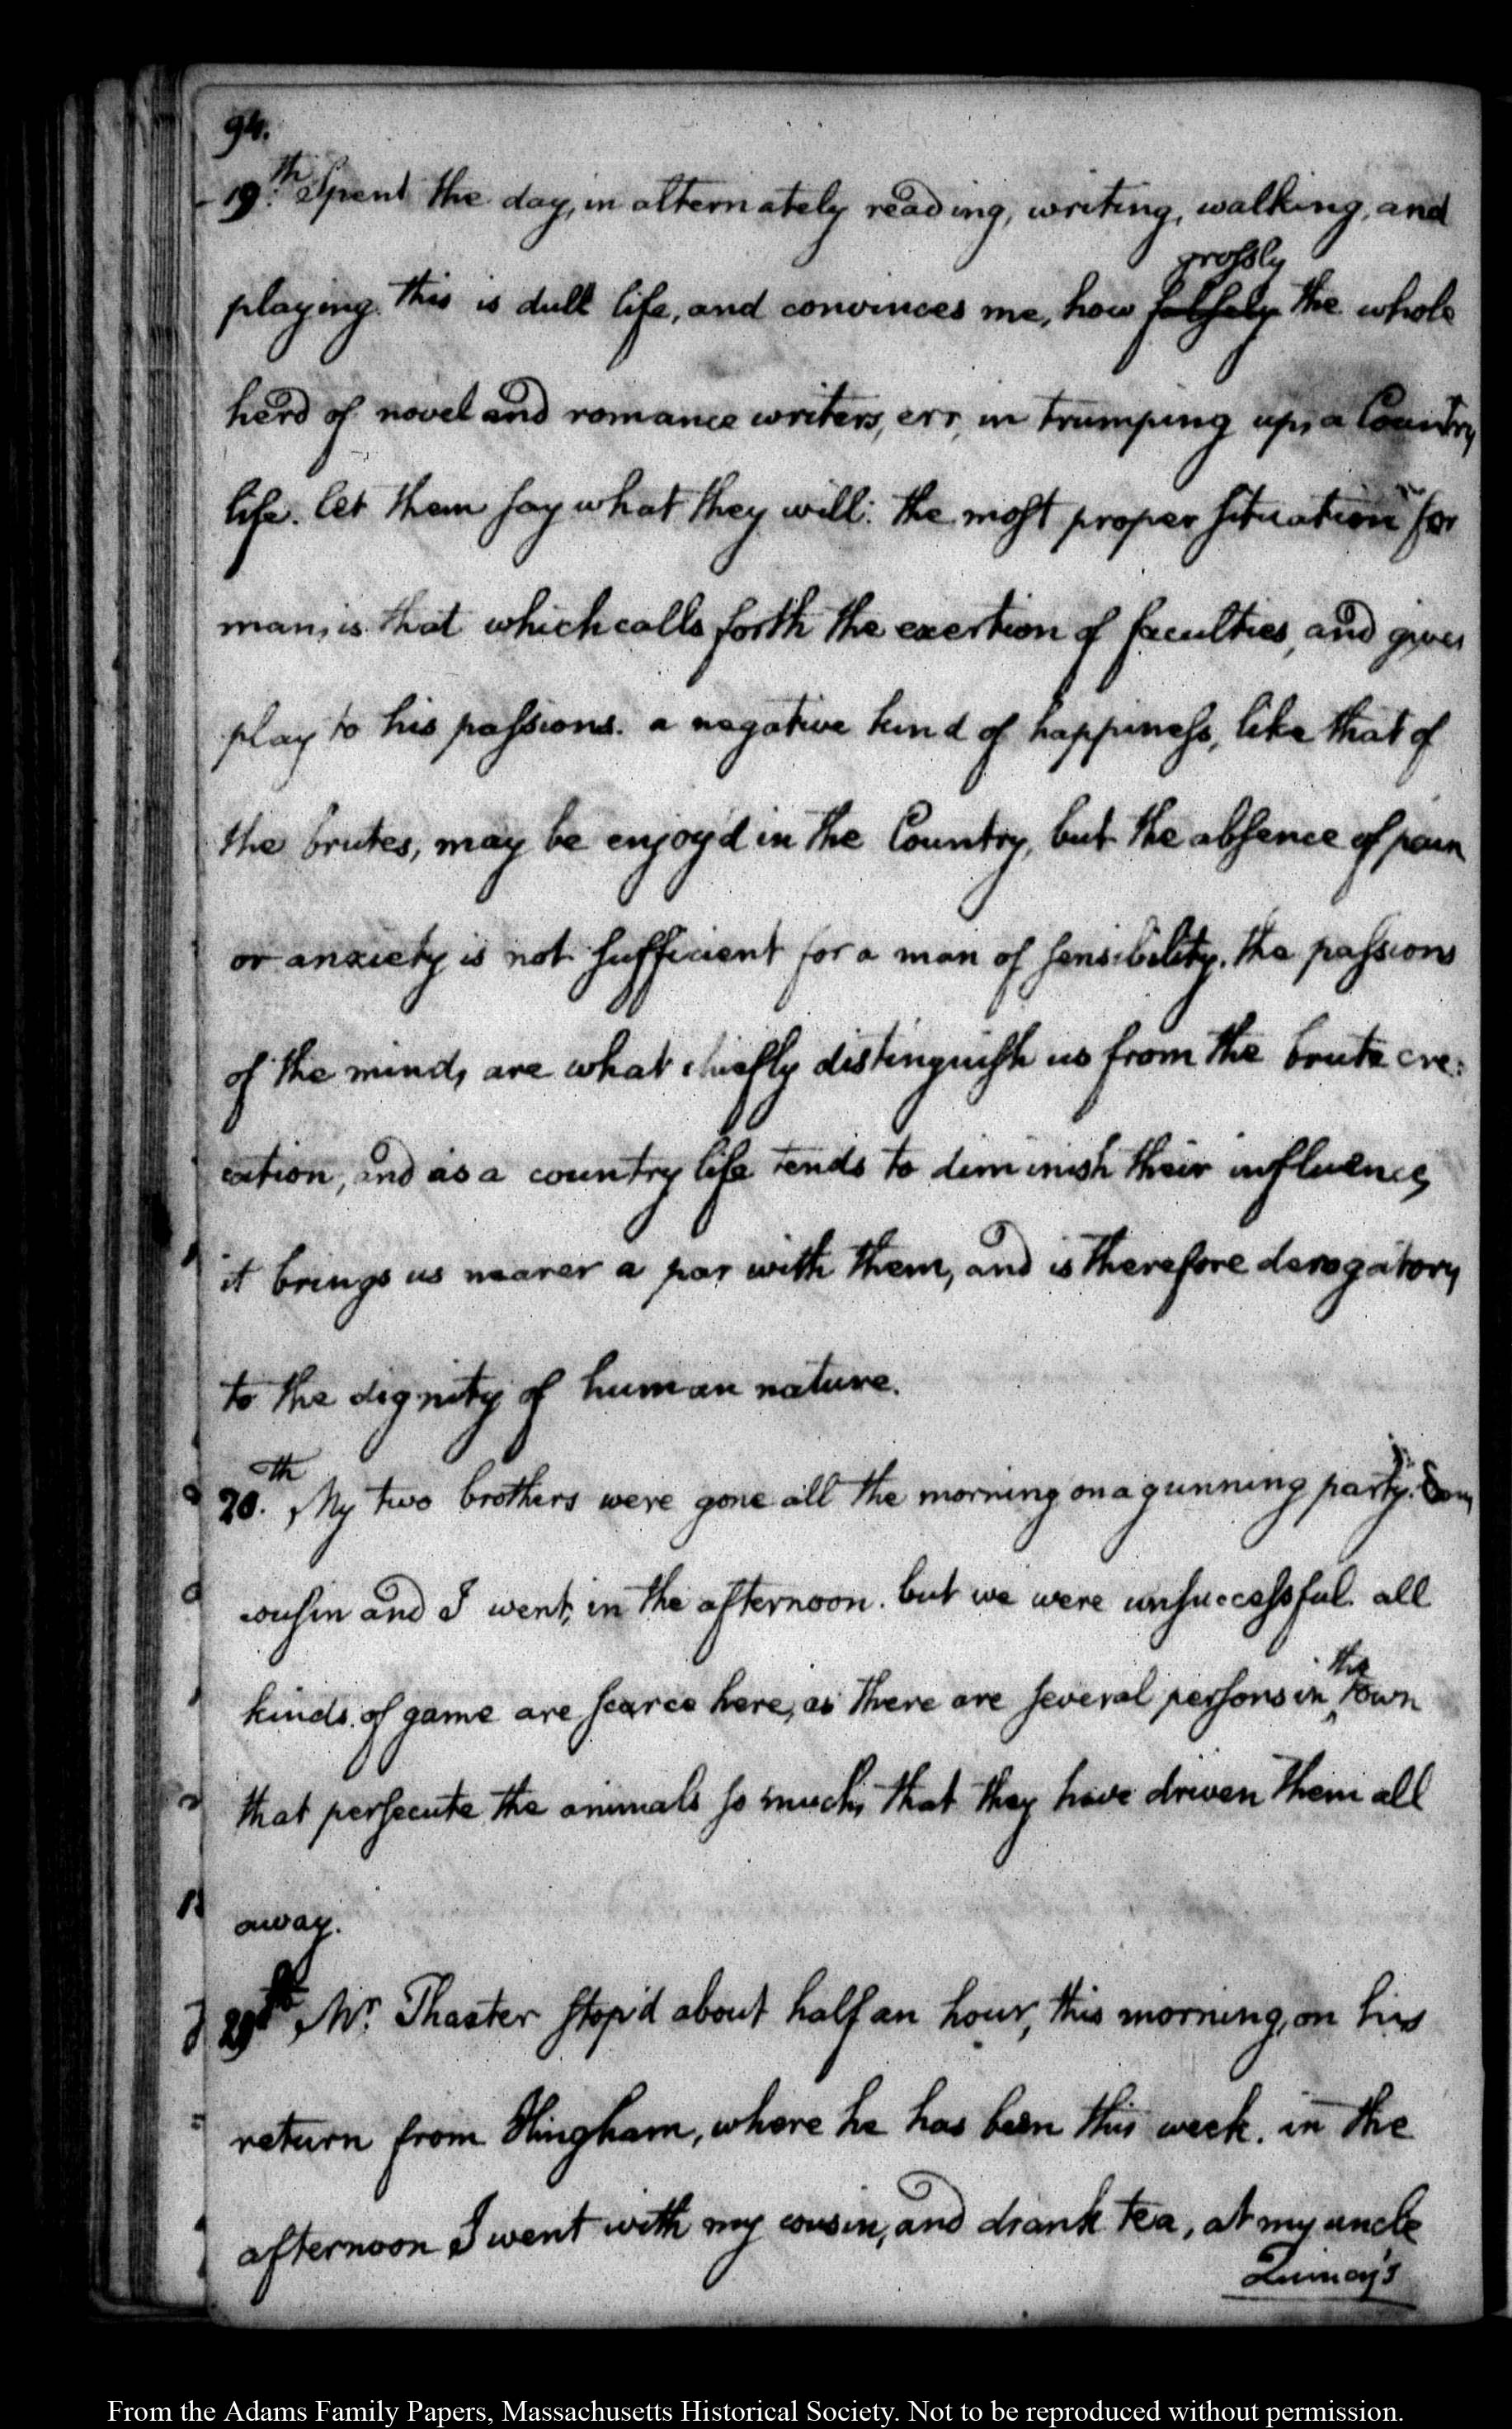 94.
19.th Spent the day, in alternately reading, writing, walking, and
playing. this is dull life, and convinces me, how falsely grossly the whole
herd of novel and romance writers, err, in trumping up, a Country
life. let them say what they will: the most proper situation for
man, is that which calls forth the exertion of faculties, and gives
play to his passions. a negative kind of happiness, like that of
the brutes, may be enjoy'd in the Country, but the absence of pain
or anxiety is not sufficient for a man of sensibility. the passions
of the mind, are what chiefly distinguish us from the brute cre:
eation, and as a country life tends to diminish their influence,
it brings us nearer a par with them, and is therefore derogatory
to the dignity of human nature.
20.th My two brothers were gone all the morning on a gunning party.
cousin and I went, in the afternoon. but we were unsuccessful. all
kinds of game are scarce here, as there are several persons in the town
that persecute the animals so much, that they have driven them all
away.
21st Mr. Thaxter stop'd about half an hour, this morning, on his
return from Hingham, where he has been this week. in the
afternoon I went with my cousin, and drank tea, at my uncle
Quincy's
From the Adams Family Papers, Massachusetts Historical Society. Not to be reproduced without permission.